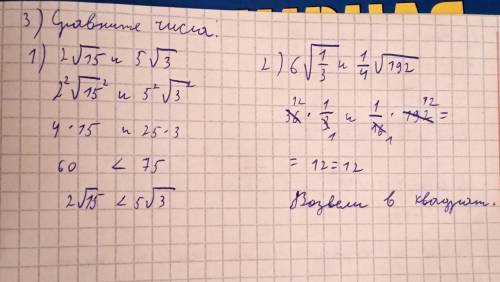 3) Сравните числа:
1) 2√15 и 5√3
2²√15² и 5²√3²
4·15 и 25·3
60 < 75
2√15 < 5√3
2) 6√(1/3) и 1/4√192
36·1/3 и 1/16·192 =
12 1 1 12
= 12 = 12
Возвели в квадрат.